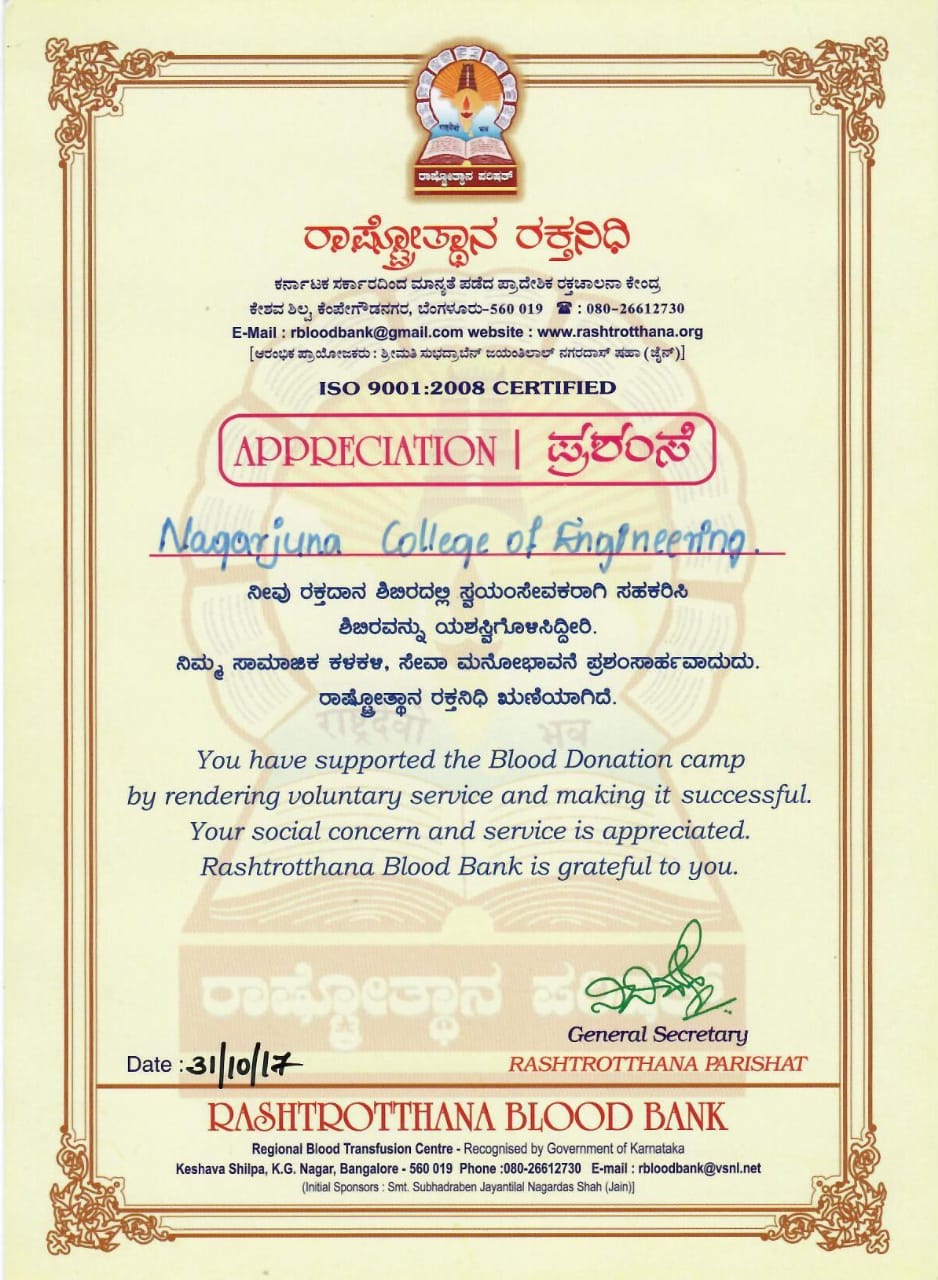 राष्ट्रदेवो भव
ರಾಷ್ಟ್ರೋತ್ಥಾನ ಪರಿಷತ್
ರಾಷ್ಟ್ರೋತ್ಥಾನ ರಕ್ತನಿಧಿ
ಕರ್ನಾಟಕ ಸರ್ಕಾರದಿಂದ ಮಾನ್ಯತೆ ಪಡೆದ ಪ್ರಾದೇಶಿಕ ರಕ್ತಚಾಲನಾ ಕೇಂದ್ರ
ಕೇಶವ ಶಿಲ್ಪ, ಕೆಂಪೇಗೌಡನಗರ, ಬೆಂಗಳೂರು-560 019 ☎ : 080-26612730
E-Mail : rbloodbank@gmail.com website : www.rashtrotthana.org
[ಆರಂಭಿಕ ಪ್ರಾಯೋಜಕರು : ಶ್ರೀಮತಿ ಸುಭದ್ರಾಬೆನ್ ಜಯಂತಿಲಾಲ್ ನಗರದಾಸ್ ಷಹಾ (ಜೈನ್)]
ISO 9001:2008 CERTIFIED
APPRECIATION | ಪ್ರಶಂಸೆ
Nagarjuna College of Engineering.
ನೀವು ರಕ್ತದಾನ ಶಿಬಿರದಲ್ಲಿ ಸ್ವಯಂಸೇವಕರಾಗಿ ಸಹಕರಿಸಿ
ಶಿಬಿರವನ್ನು ಯಶಸ್ವಿಗೊಳಿಸಿದ್ದೀರಿ.
ನಿಮ್ಮ ಸಾಮಾಜಿಕ ಕಳಕಳಿ, ಸೇವಾ ಮನೋಭಾವನೆ ಪ್ರಶಂಸಾರ್ಹವಾದುದು.
ರಾಷ್ಟ್ರೋತ್ಥಾನ ರಕ್ತನಿಧಿ ಋಣಿಯಾಗಿದೆ.
राष्ट्रदेवो भव
You have supported the Blood Donation camp
by rendering voluntary service and making it successful.
Your social concern and service is appreciated.
Rashtrotthana Blood Bank is grateful to you.
ರಾಷ್ಟ್ರೋತ್ಥಾನ ಪರಿಷತ್
General Secretary
Date : 31/10/17 RASHTROTTHANA PARISHAT
RASHTROTTHANA BLOOD BANK
Regional Blood Transfusion Centre - Recognised by Government of Karnataka
Keshava Shilpa, K.G. Nagar, Bangalore - 560 019 Phone :080-26612730 E-mail : rbloodbank@vsnl.net
(Initial Sponsors : Smt. Subhadraben Jayantilal Nagardas Shah (Jain)]